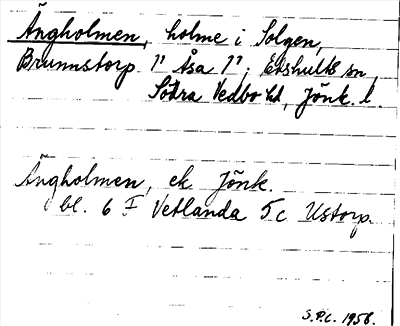 Ängholmen, holme i Solgen,
Brunnstorp 1¹ Åsa 1¹, Edshults sn,
Södra Vedbo hd, Jönk. l.
Ängholmen, ek Jönk.
bl. 6 F Vetlanda 5c Ustorp.
S.P.C. 1958.